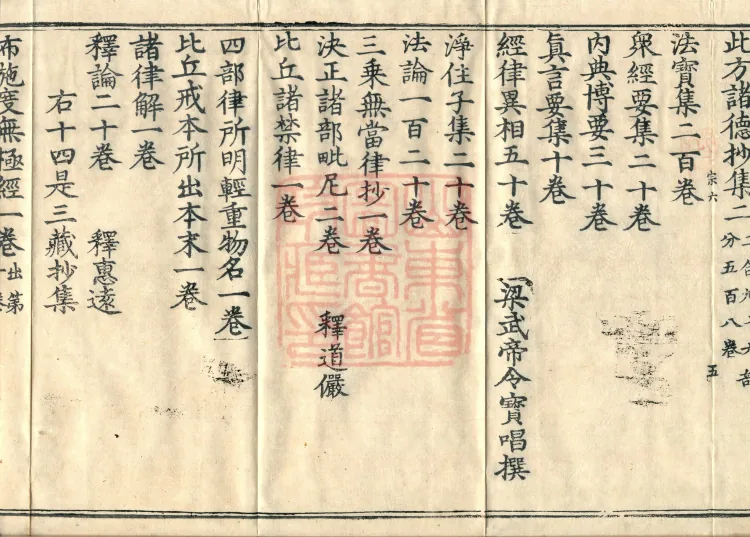 此方諸德抄集二分五百八卷
宗六
五
法寶集二百卷
衆經要集二十卷
內典博要三十卷
眞言要集十卷
經律異相五十卷 梁武帝令寶唱撰
淨住子集二十卷
法論一百二十卷
三乘無當律抄一卷
決正諸部毗尼二卷 釋道儼
比丘諸禁律一卷
四部律所明輕重物名一卷
比丘戒本所出本末一卷
諸律解一卷
釋論二十卷 釋惠遠
右十四是三藏抄集
布施度無極經一卷出第